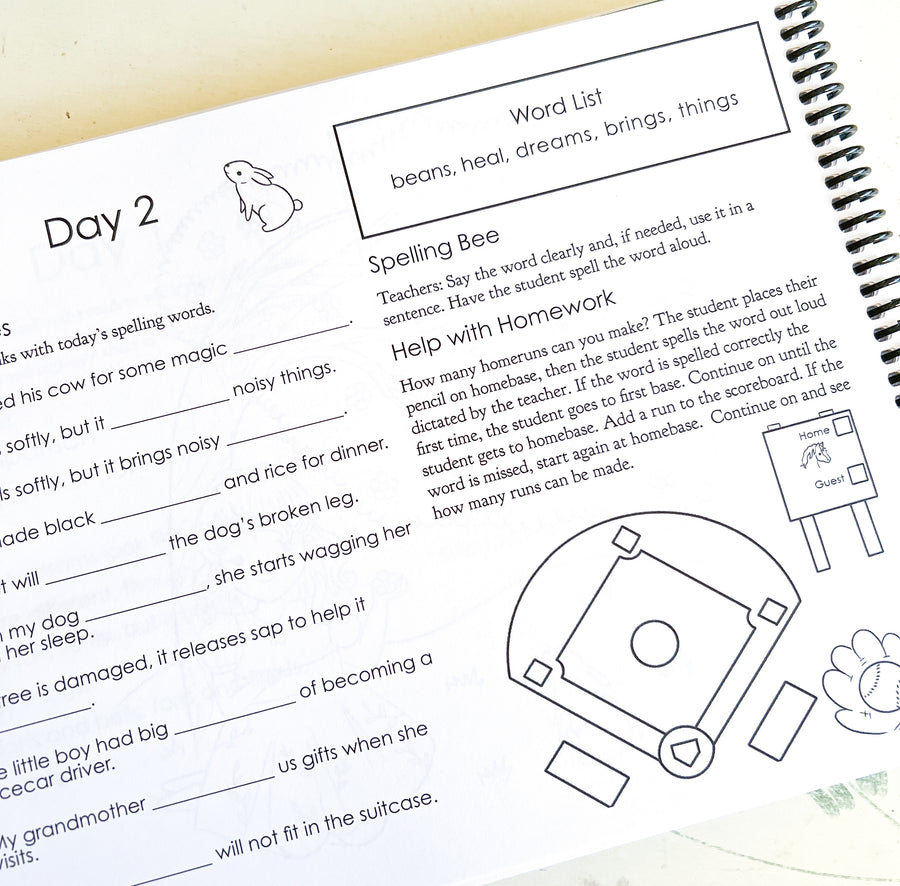 Day 2
Word List
beans, heal, dreams, brings, things
with today's spelling words.
his cow for some magic ____________.
softly, but it ____________ noisy things.
softly, but it brings noisy ____________.
black ____________ and rice for dinner.
will ____________ the dog's broken leg.
my dog ____________, she starts wagging her
her sleep.
tree is damaged, it releases sap to help it
____________.
little boy had big ____________ of becoming a
driver.
My grandmother ____________ us gifts when she
visits.
____________ will not fit in the suitcase.
Spelling Bee
Teachers: Say the word clearly and, if needed, use it in a
sentence. Have the student spell the word aloud.
Help with Homework
How many homeruns can you make? The student places their
pencil on homebase, then the student spells the word out loud
dictated by the teacher. If the word is spelled correctly the
first time, the student goes to first base. Continue on until the
student gets to homebase. Add a run to the scoreboard. If the
word is missed, start again at homebase. Continue on and see
how many runs can be made.
Home
Guest